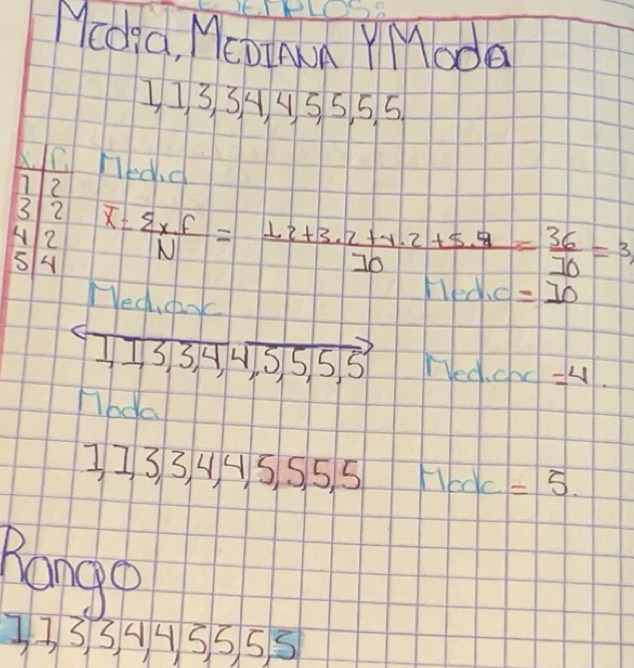 EJEMPLOS:
Media, MEDIANA Y Moda
1,1,3,3,4,4,5,5,5,5.
x. f.
1 2
3 2
4 2
5 4
Media
x̄ = Σx.f / N = 1.2+3.2+4.2+5.4 / 10 = 36 / 10 = 3,
Media = 10
Mediana
1,1,3,3,4,4,5,5,5,5
Mediana = 4.
Moda
1,1,3,3,4,4,5,5,5,5
Moda = 5.
Rango
1,1,3,3,4,4,5,5,5,5